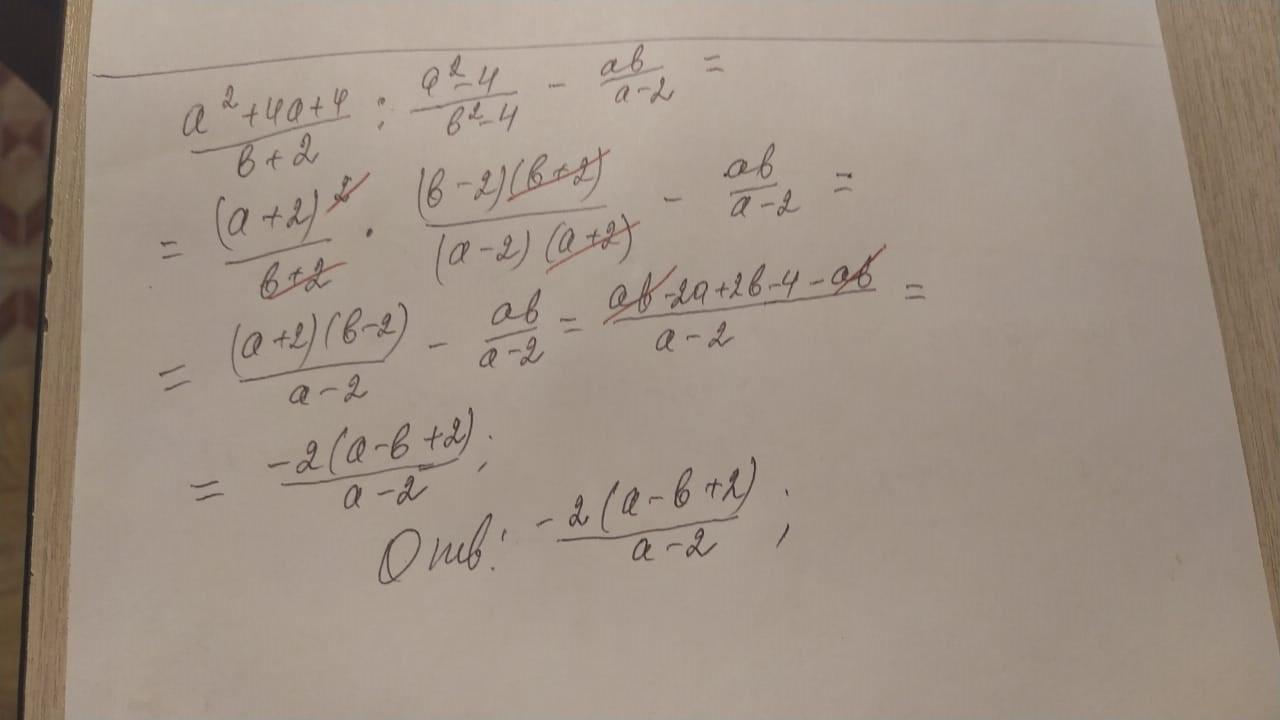 (a²+4a+4)/(в+2) : (a²-4)/(в²-4) - aв/(a-2) =
= (a+2)²/(в+2) · (в-2)(в+2)/((a-2)(a+2)) - aв/(a-2) =
= (a+2)(в-2)/(a-2) - aв/(a-2) = (aв-2a+2в-4-aв)/(a-2) =
= -2(a-в+2)/(a-2) ;
Отв: -2(a-в+2)/(a-2) ;